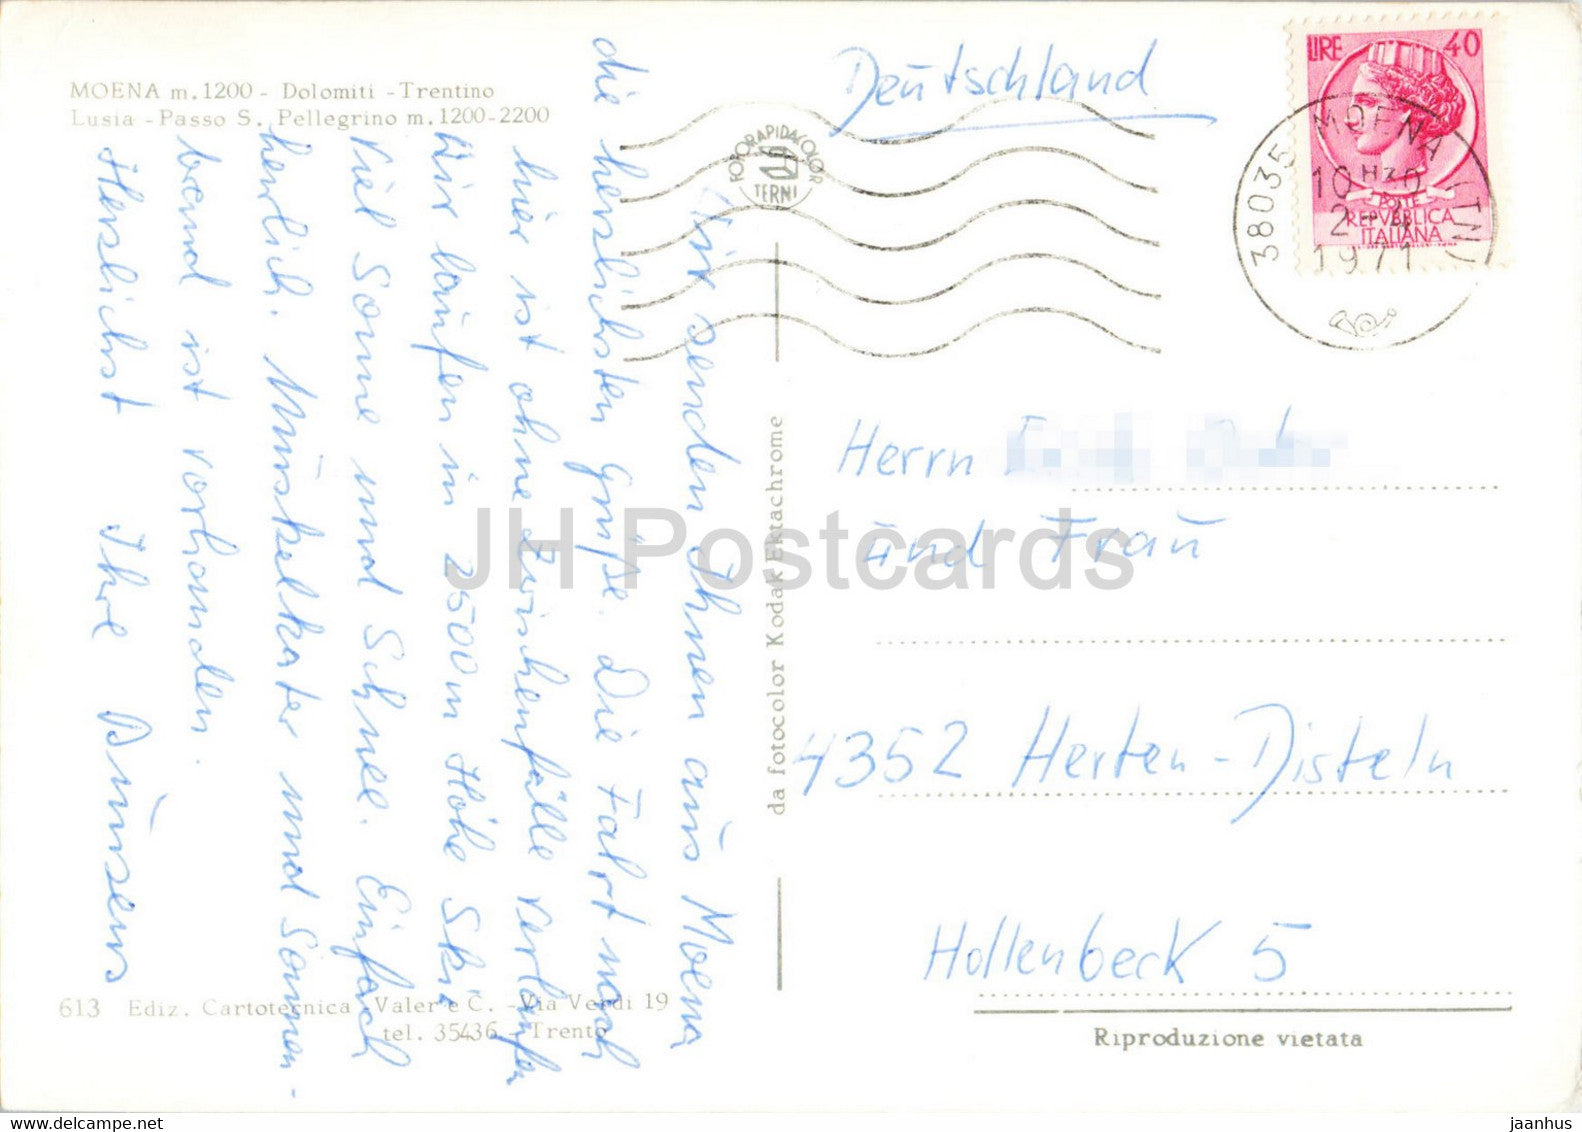 MOENA m. 1200 - Dolomiti - Trentino
Lusia - Passo S. Pellegrino m. 1200-2200
Wir senden Ihnen aus Moena
die herzlichsten Grüße. Die Fahrt nach
hier ist ohne Zwischenfälle verlaufen
Wir laufen in 2500 m Höhe Ski
Viel Sonne und Schnee. Einfach
herrlich. Muskelkater und Sonnen-
brand ist vorhanden.
Herzlichst Ihre
613 Ediz. Cartotecnica Valer e C. - Via Verdi 19
tel. 35436 - Trento
FOTORAPIDACOLOR
TERNI
da fotocolor Kodak Ektachrome
Deutschland
LIRE 40
POSTE
REPVBBLICA
ITALIANA
38035 MOENA (TN)
1971
Herrn
und Frau
4352 Herten-Disteln
Hollenbeck 5
Riproduzione vietata
JH Postcards
www.delcampe.net
jaanhus